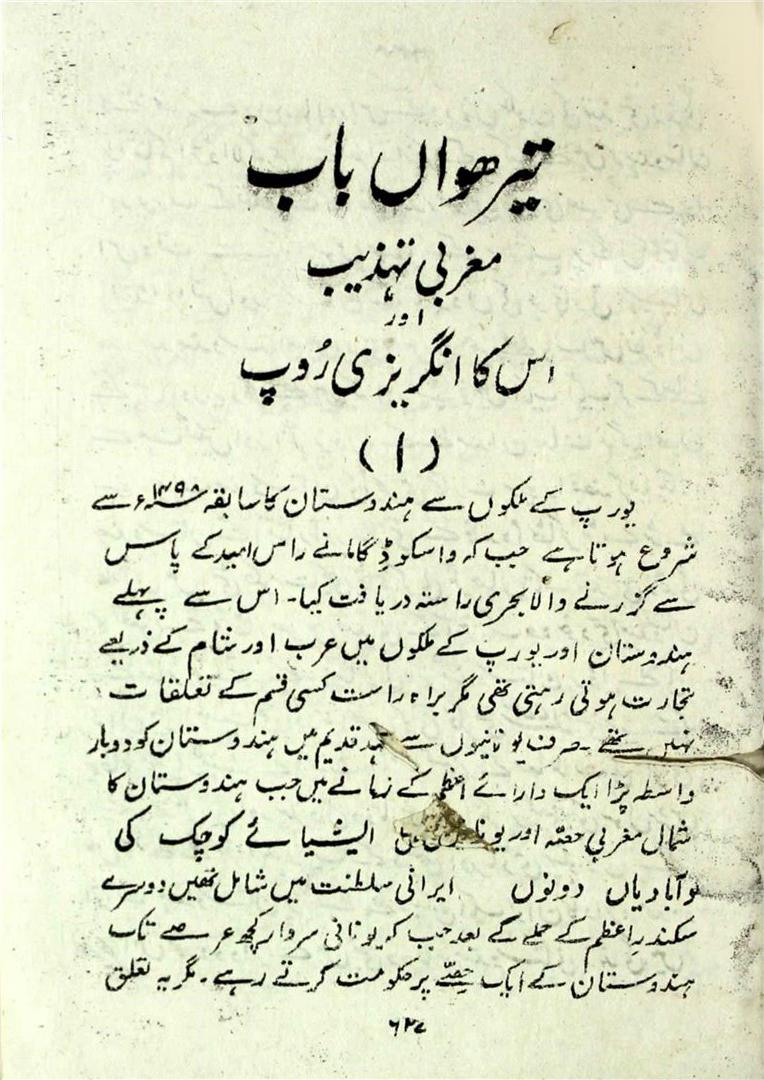 تیرھواں باب
مغربی تہذیب
اور
اس کا انگریزی رُوپ
(ا)
یورپ کے ملکوں سے ہندوستان کا سابقہ ۱۴۹۸ء سے
شروع ہوتا ہے جب کہ واسکوڈِ گامانے راس امید کے پاس
سے گزرنے والا بحری راستہ دریافت کیا۔ اس سے پہلے
ہندوستان اور یورپ کے ملکوں میں عرب اور شام کے ذریعے
تجارت ہوتی رہتی تھی مگر براہ راست کسی قسم کے تعلقات
نہیں تھے۔ صرف یونانیوں سے عہد قدیم میں ہندوستان کو دوبار
واسطہ پڑا ایک دارائے اعظم کے زمانے میں جب ہندوستان کا
شمال مغربی حصّہ اور ایشیائے کوچک کی
نوآبادیاں دونوں ایرانی سلطنت میں شامل تھیں دوسرے
سکندرِ اعظم کے حملے کے بعد جب کہ یونانی سردار کچھ عرصے تک
ہندوستان کے ایک حِصّے پر حکومت کرتے رہے۔ مگر یہ تعلق
۶۲۷